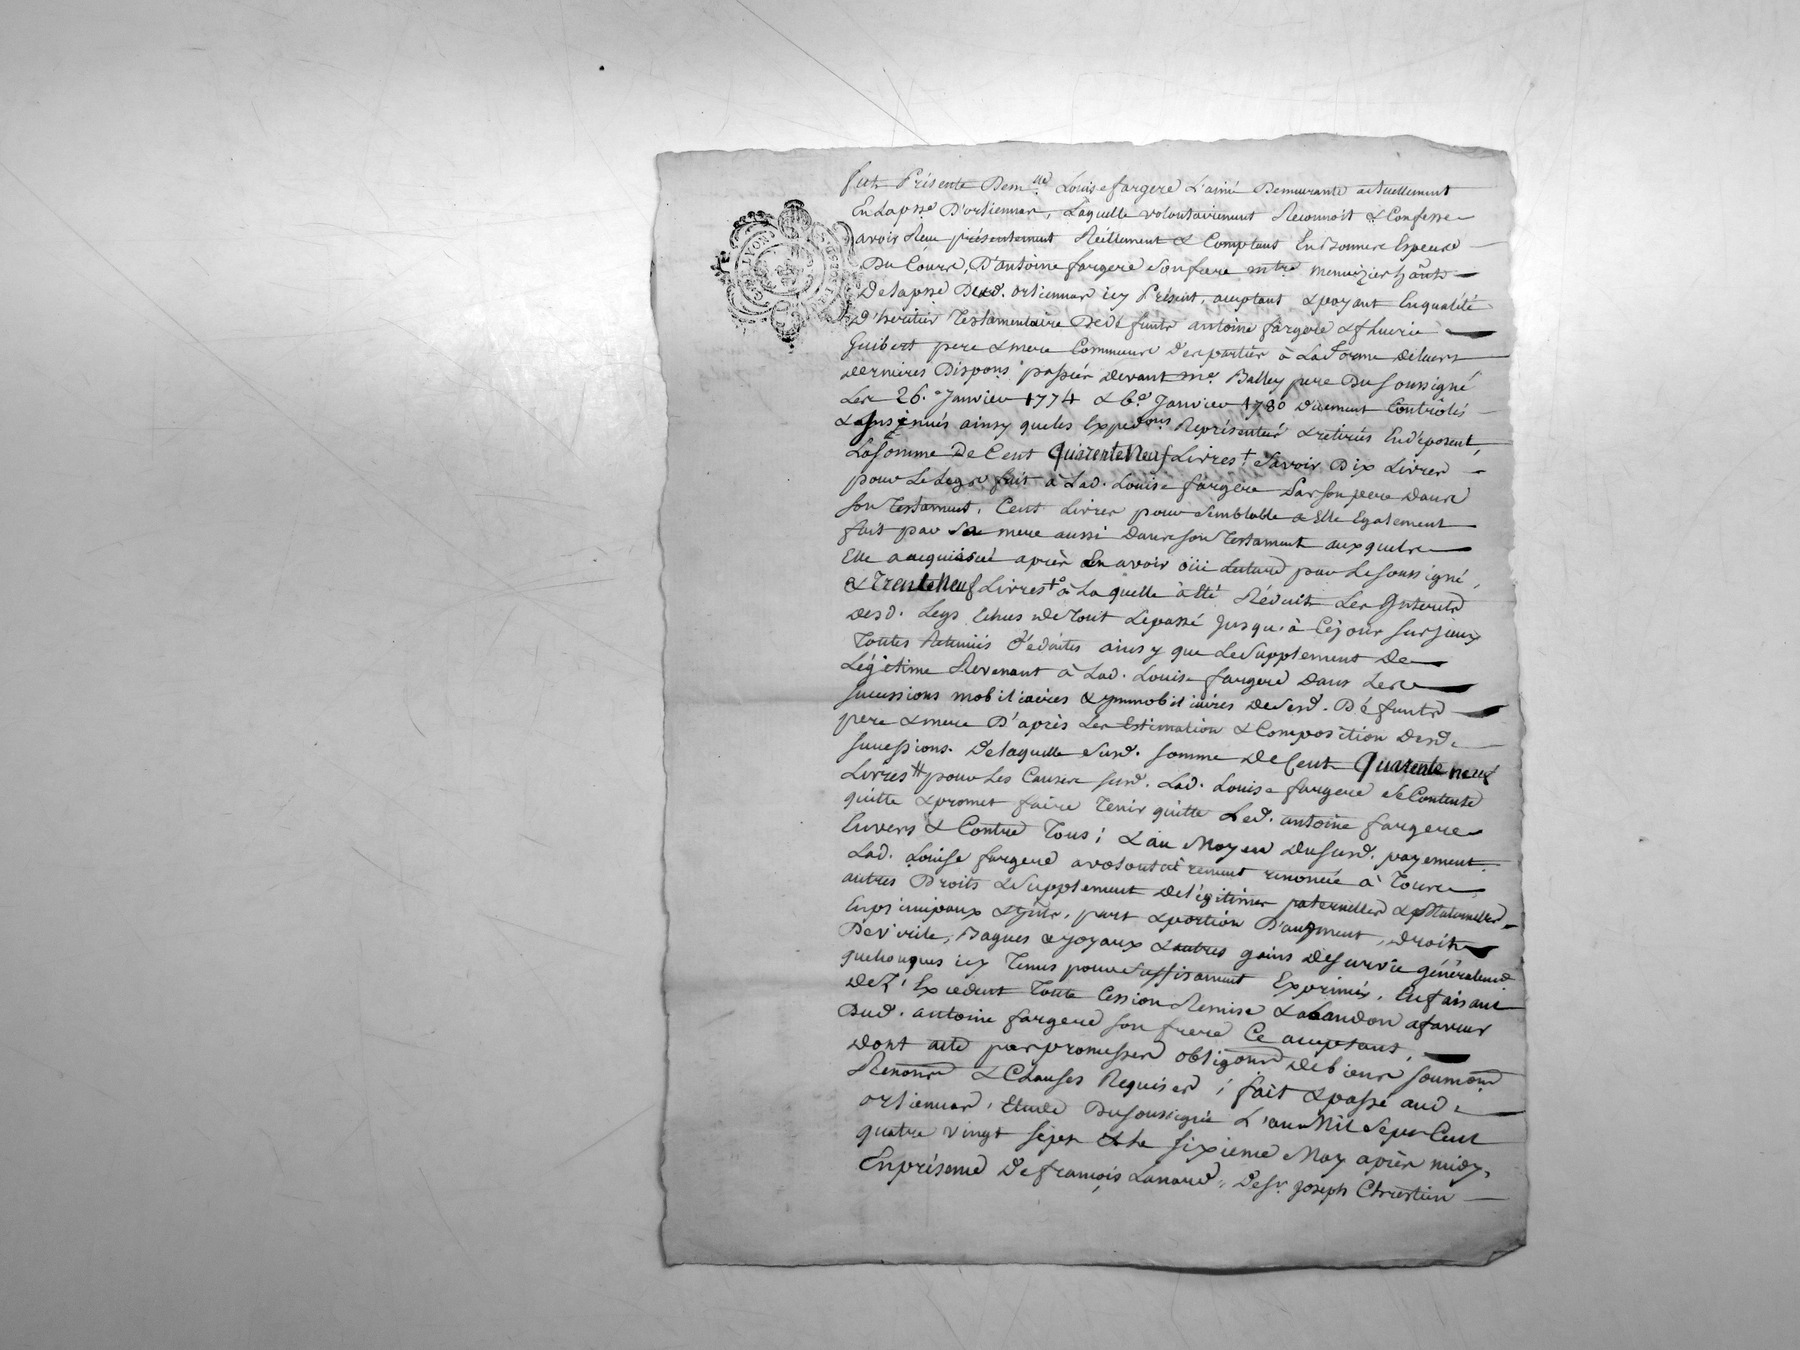 fut Présente Dem.lle Louise fargere L'ainé Demeurante actuellement
En La psse D'ortiennas, Laquelle volontairement Reconnoit & Confesse
avoir Reçu présentement Réellement & Comptant En Bonnes Especes
Du Cours, D'antoine fargere son frere mtre menuizier hãnt
De la psse Dud. ortiennas icy Présent, acceptant & payant En qualité
D'heritier Testamentaire De defunts antoine fargere & f
Guibert pere & mere Communs Des parties à La forme de leurs
dernieres Dispons passées devant me. Balley pere Du soussigné
Les 26. Janvier 1774 & 6.e Janvier 1780 duement Contrôlés
& Insinués ainsy que les Expedons Représentées & retirées En déposent,
La somme De Cent Quarente Neuf Livres + Savoir Dix Livres
pour Le Legs fait à Lad. Louise fargere Par son pere dans
son Testament, Cent Livres pour semblable a Elle Egalement
fait par sa mere aussi dans son Testament auxquels
Elle a acquiéscé après en avoir öüi Lecture par Le soussigné,
& Trente Neuf Livres + à La quelle à été Réduit Les Interets
desd. Legs Echus de Tout Le passé Jusqu'à Ce jour sur iceux
Toutes Retenües Déduites ainsy que Le Supplement De
Légitime Revenant à Lad. Louise fargere dans Les
successions mobiliaires & ymmobiliaires desd. Défunts
pere & mere D'après Les Estimation & Composition desd.
successions. De laquelle susd. somme de Cent Quarente neuf
Livres pour Les Causes susd. Lad. Louise fargere se Contente
quitte & promet faire Tenir quitte Led. antoine fargere
Envers & Contre Tous; & au Moyen du susd. payement
Lad. Louise fargere a volontairement renoncée à Tous
autres Droits & Supplement de légitimes paternelles & Maternelles,
En principaux & part & portion D'augment, droits
De virile, Bagues & joyaux & autres gains de survie généralement
quelconques icy Tenus pour suffisament Exprimés, En faisant
de L'Excedent Toute Cession Remise & abandon a faveur
Dud. antoine fargere son frere Ce acceptant,
dont acte par promesses obligons de biens soumons
Renons & Clauses Requises; fait & passé aud.
ortiennas, Etude Du soussigné L'an Mil Sept Cent
quatre vingt sept & le sixieme May après midy,
En présence De françois Lanard, De sr. Joseph Chrestien